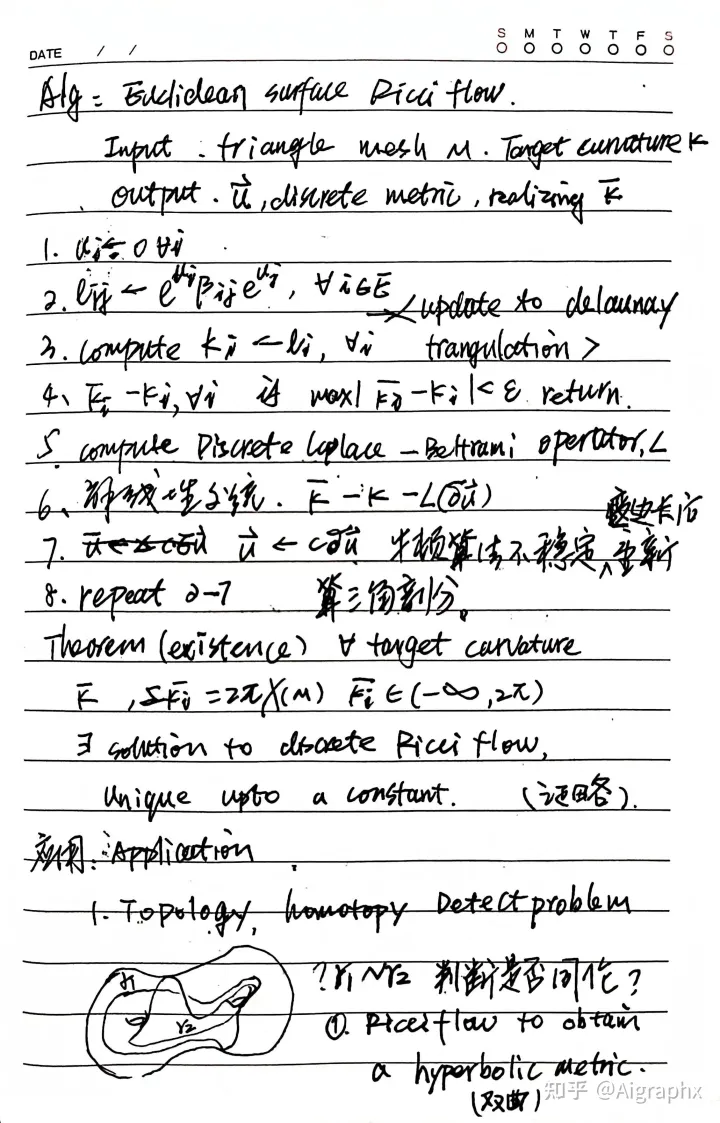 S M T W T F S
DATE / /
Alg = Euclidean surface Ricci flow.
Input . triangle mesh M . Target curvature K
output . u⃗, discrete metric, realizing K̄
1. ui ← 0 ∀i
2. lij ← e^ui βij e^uj, ∀ i∈E
<update to delaunay
3. compute ki ← li, ∀i trangulation >
4、 K̄i - Ki, ∀i if max| K̄i - Ki | < ε return.
5. compute Discrete Laplace - Beltrami opertator, L
6、 解线性系统. K̄ - K - L(∂u⃗)
变边长后
7. u⃗ ← c∂u⃗ 牛顿算法不稳定, 重新
8. repeat 2-7 算三角剖分。
Theorem (existence) ∀ target curvature
K̄ , ΣK̄i = 2πχ(M) K̄i ∈ (-∞, 2π)
∃ solution to discrete Ricci flow,
Unique upto a constant. (证明略).
应用: Application
1. Topology, homotopy Detect problem
γ1
γ2
? γ1 ~ γ2 判断是否同伦?
①. Ricci flow to obtain
a hyperbolic metric.
(双曲)
知乎 @Aigraphx